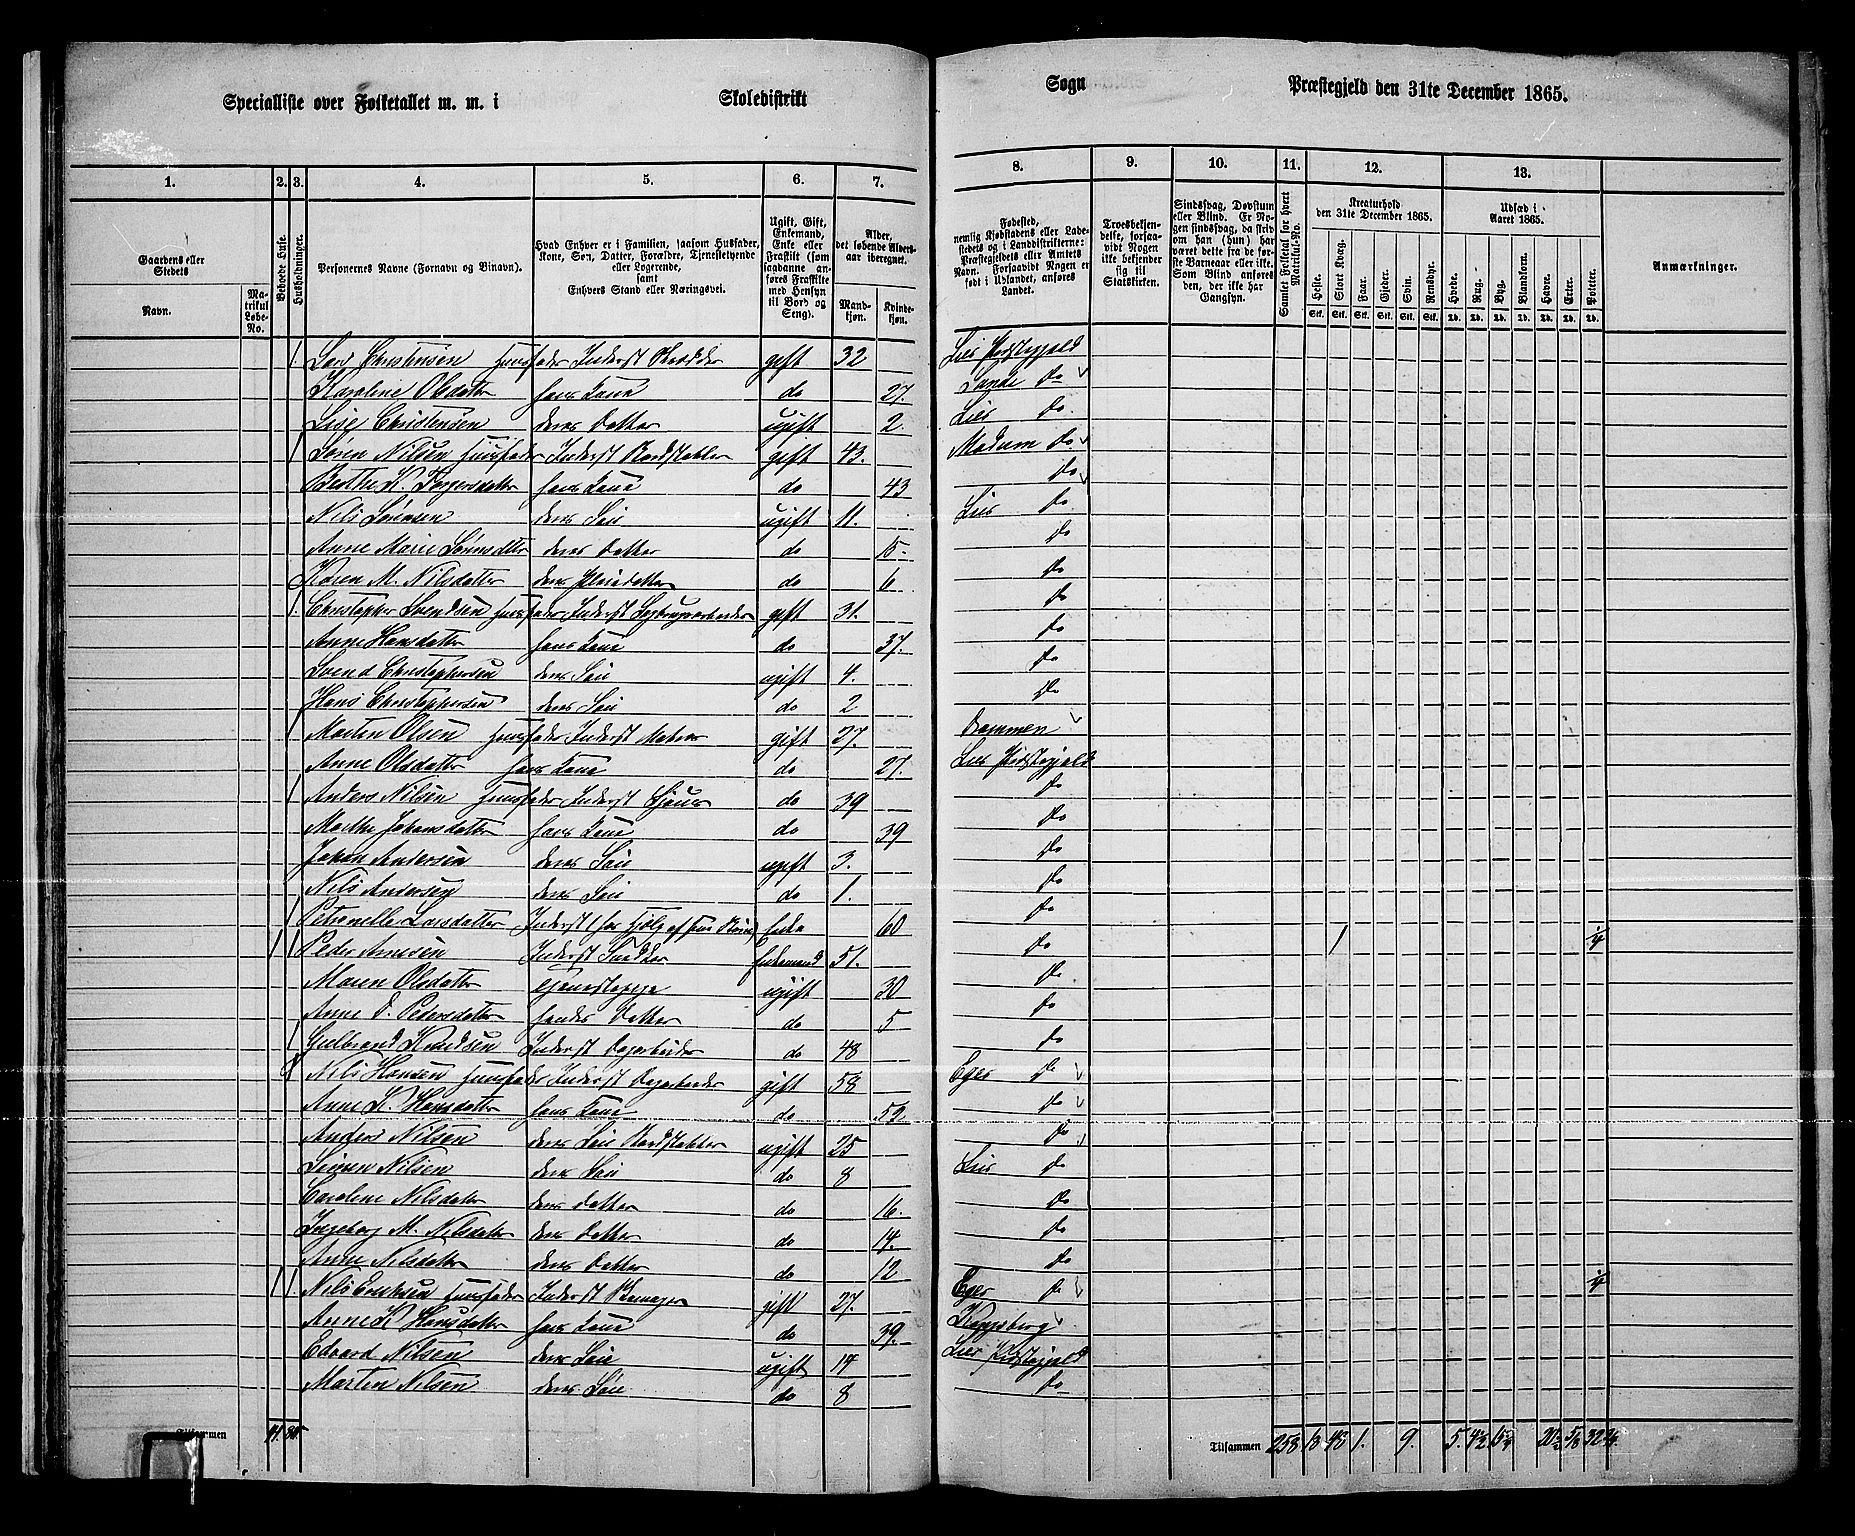 Specialliste over Folketallet m. m. i Skoledistrikt Sogn Præstegjeld den 31te December 1865.
1. 2. 3. 4. 5. 6. 7. 8. 9. 10. 11. 12. 13.
Gaardens eller Stedets
Navn.
Matrikul Løbe-No.
Beboede Huse.
Husholdninger.
Personernes Navne (Fornavn og Binavn).
Hvad Enhver er i Familien, saasom Husfader, Kone, Søn, Datter, Forældre, Tjenestetyende eller Logerende, samt Enhvers Stand eller Næringsvei.
Ugift, Gift, Enkemand, Enke eller Fraskilt (som saadanne anføres Fraskilte med Hensyn til Bord og Seng).
Alder, det løbende Aldersaar iberegnet.
Mandkjøn. Kvindekjøn.
Fødested, nemlig Kjøbstadens eller Ladestedets og i Landdistrikterne: Præstegjeldets eller Amtets Navn. Forsaavidt Nogen er født i Udlandet, anføres Landet.
Troesbekjendelse, forsaavidt Nogen ikke bekjender sig til Statskirken.
Sindssvag, Døvstum eller Blind. Er Nogen sindssvag, da skriv om han (hun) har været dette fra de første Barneaar eller ikke. Som Blind anføres den, der ikke har Gangsyn.
Samlet Folketal for hvert Matrikul-No.
Kreaturhold den 31te December 1865.
Heste. Stort Kvæg. Faar. Gjeder. Svin. Rensdyr.
Stk. Stk. Stk. Stk. Stk. Stk.
Udsæd i Aaret 1865.
Hvede. Rug. Byg. Blandkorn. Havre. Erter. Poteter.
Td. Td. Td. Td. Td. Td. Td.
Anmærkninger.
1. Lars Christensen Huusfader Inderst Skrædder gift 32 Lier Præstegjeld
Karoline Olsdatter hans Kone do 27. Sande Do
Christensen deres Datter ugift 2 Lier Do
1 Søren Nilsen Huusfader Inderst gift 43. Modum Do
Berthe K. Torgersdatter hans Kone do 43 Do
Nils Sørensen deres Søn ugift 11. Lier Do
Anne Marie Sørensdtter deres Datter do 15. Do
Karen M. Nilsdatter deres Pleiedatter do 6 Do
1. Christopher Svendsen Huusfader Inderst gift 31. Do
Anne Hansdatter hans Kone do 37. Do
Svend Christophersen deres Søn ugift 4. Do
Hans Christophersen deres Søn do 2 Do
1 Morten Olsen Huusfader Inderst gift 27. Drammen
Anne Olsdatter hans Kone do 27. Lier Præstegjeld
1 Anders Nilsen Huusfader Inderst do 39 Do
Marthe Johansdatter hans Kone do 39 Do
Johan Andersen deres Søn ugift 3. Do
Nils Andersen deres Søn do 1. Do
1 Petronelle Larsdatter Inderst Enke 60 Do
1 1 Peder Arnesen Inderst Snedker Enkemand 51. Do 1 1/4
Maren Olsdatter Tjenestepige ugift 30 Do
Anne P. Pedersdatter Datter do 5 Do
1 Gulbrand Knudsen Inderst Dagarbeider do 48 Do
Nils Hansen Huusfader Inderst Dagarbeider gift 58 Eger Do
Anne K. Hansdatter hans Kone do 52. Do
Anders Nilsen deres Søn ugift 25 Do
Simen Nilsen deres Søn do 8 Lier Do
Caroline Nilsdatter deres Datter do 16. Do
Ingeborg M. Nilsdatter deres Datter do 14. Do
Anne Nilsdatter deres Datter do 12 Do
1 1. Nils Eriksen Huusfader Inderst gift 27. Eger Do 1/4
Anne K Hansdatter hans Kone do 39. Kongsberg
Edvard Nilsen deres Søn ugift 14 Lier Præstegjeld
Morten Nilsen deres Søn do 8 Do
Tilsammen Tilsammen 258 13 1. 9. 5.